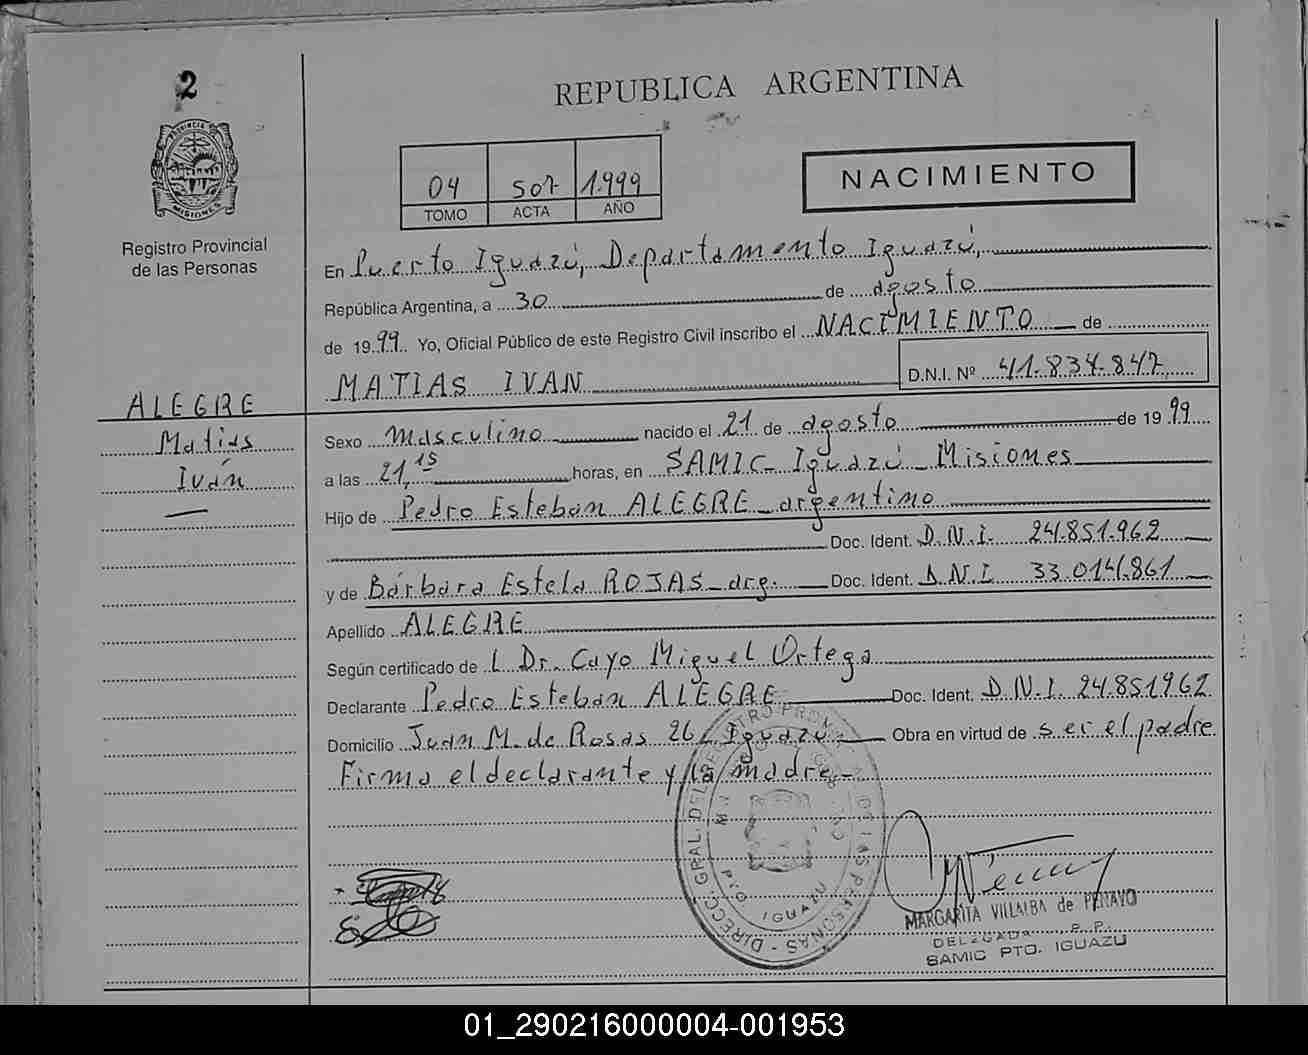 2
REPUBLICA ARGENTINA
PROVINCIA
MISIONES
Registro Provincial
de las Personas
04 507 1.999
TOMO ACTA AÑO
NACIMIENTO
En Puerto Iguazú, Departamento Iguazú,
República Argentina, a 30 de agosto
de 1999 Yo, Oficial Público de este Registro Civil inscribo el NACIMIENTO de
MATIAS IVAN D.N.I. Nº 41.834.847
ALEGRE
Matias
Iván
Sexo masculino nacido el 21 de agosto de 1999
a las 21,15 horas, en SAMIC Iguazú Misiones
Hijo de Pedro Esteban ALEGRE argentino
Doc. Ident. D.N.I. 24.851.962
y de Bárbara Estela ROJAS arg. Doc. Ident. D.N.I 33.014.861
Apellido ALEGRE
Según certificado de L Dr. Cayo Miguel Ortega
Declarante Pedro Esteban ALEGRE Doc. Ident. D.N.I. 24.851962
Domicilio Juan M. de Rosas 26 Iguazú Obra en virtud de ser el padre.
Firma el declarante y la madre
DIRECC. GRAL. DEL REGISTRO PROV. DE LAS PERSONAS
PTO IGUAZU
MARGARITA VILLALBA de PENAYO
DELEGADA R. P. P.
SAMIC PTO. IGUAZU
01_290216000004-001953